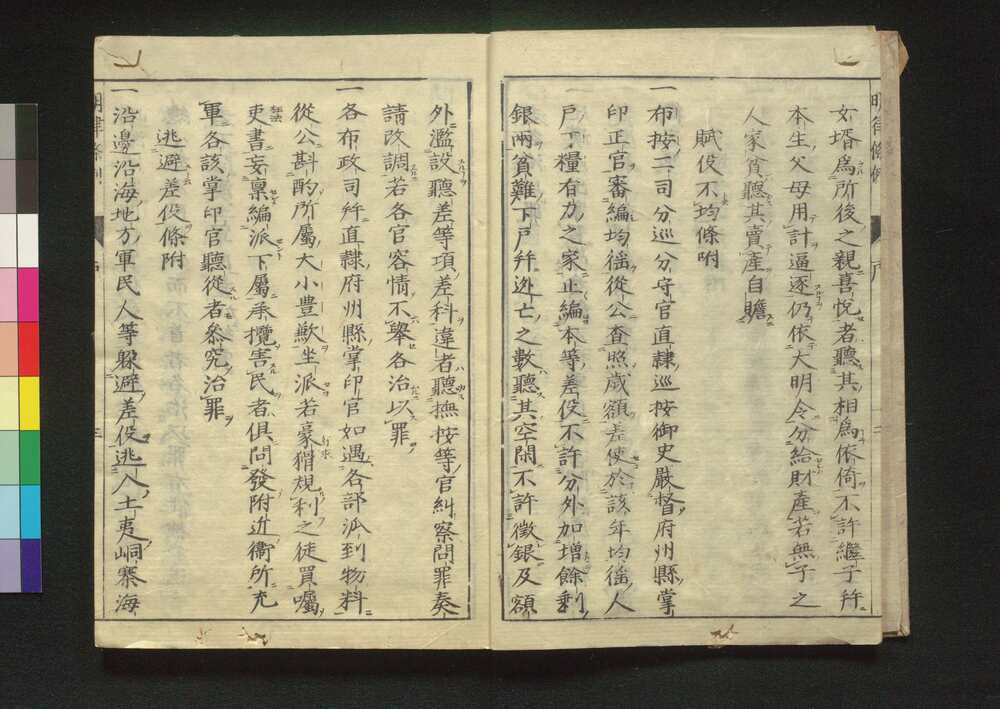 如壻爲所後之親喜悅者聽其相爲依倚不許繼子幷
本生父母用計逼逐仍依大明令分給財產若無子之
人家貧聽其賣產自贍
賦役不均條附
一布按二司分巡分守官直隷巡按御史嚴督府州縣掌
印正官審編均徭從公查照歲額差使於該年均徭人
戶丁糧有力之家止編本等差役不許分外加增餘剩
銀兩貧難下戶幷逃亡之數聽其空閑不許徵銀及額
外濫設聽差等項差科違者聽撫按等官糾察問罪奏
請改調若各官容情不舉各治以罪
一各布政司幷直隷府州縣掌印官如遇各部派到物料
從公斟酌所屬大小豊歉坐派若豪猾規利之徒買囑
吏書妄稟編派下屬承攬害民者俱問發附近衞所充
軍各該掌印官聽從者參究治罪
逃避差役條附
一沿邊沿海地方軍民人等躱避差役逃入土夷峒寨海